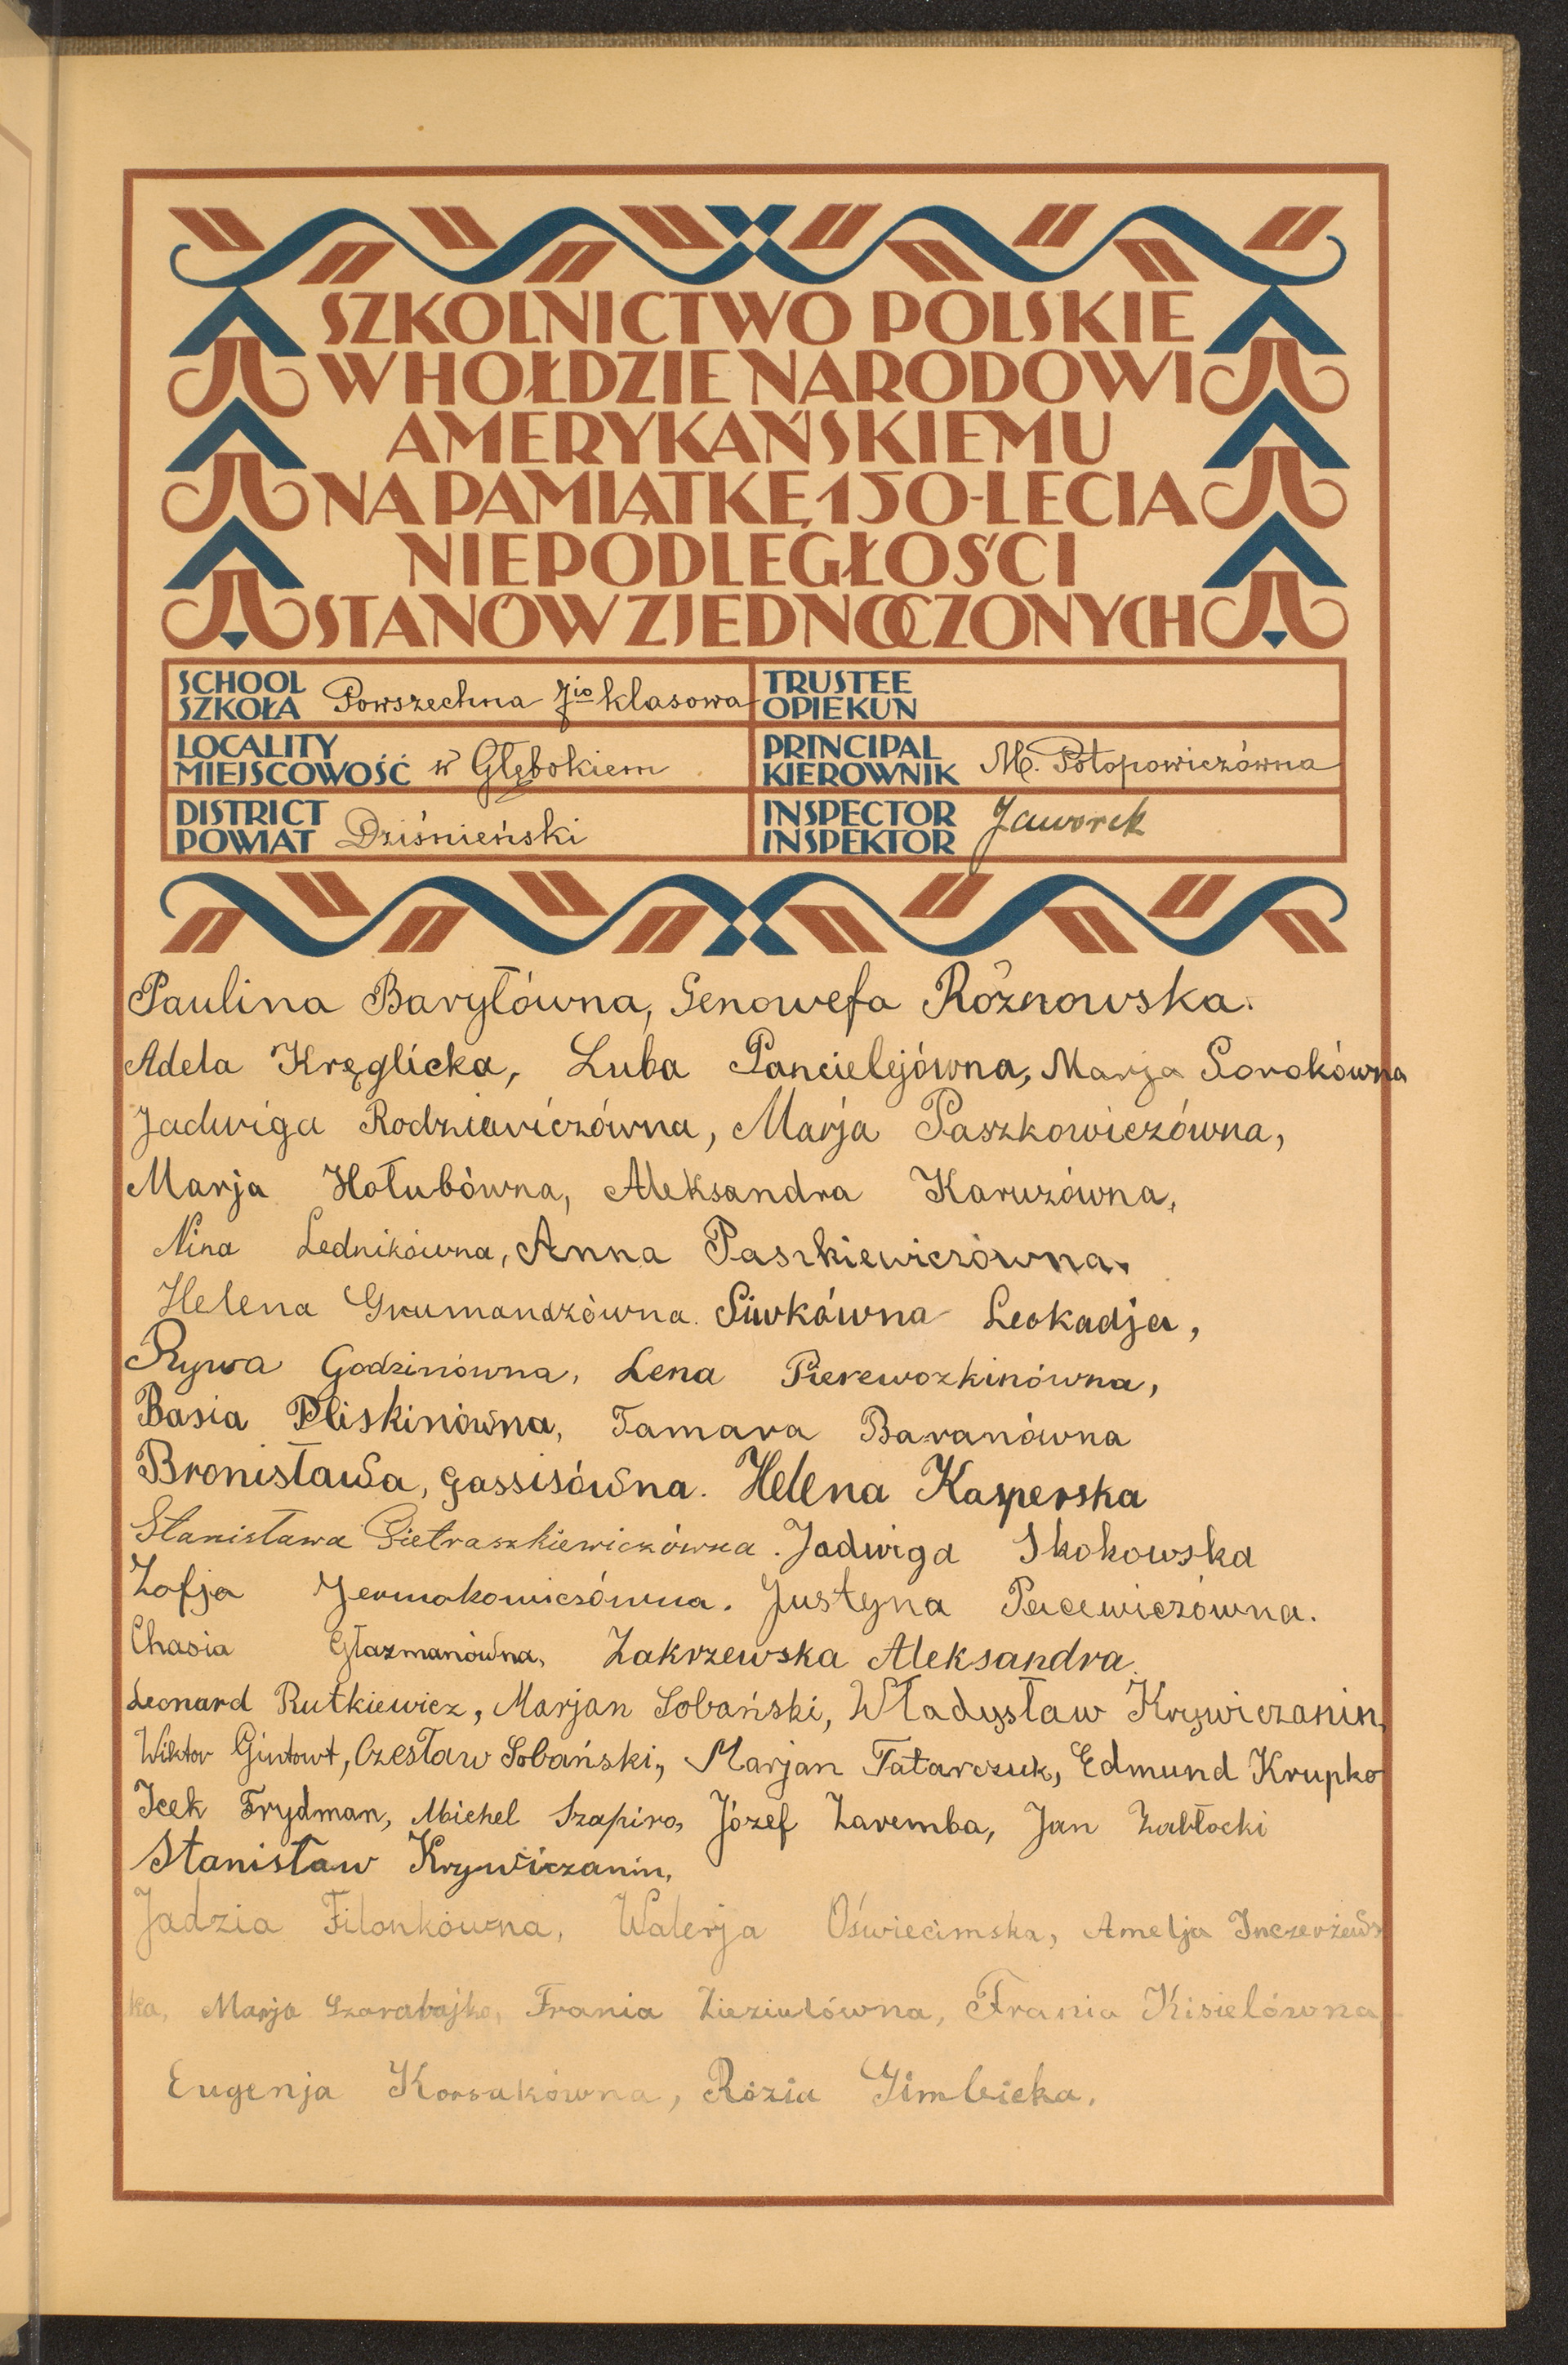 SZKOLNICTWO POLSKIE
W HOŁDZIE NARODOWI
AMERYKAŃSKIEMU
NA PAMIĄTKĘ 150-LECIA
NIEPODLEGŁOŚCI
STANÓW ZJEDNOCZONYCH
SCHOOL
SZKOŁA Powszechna 7io klasowa
TRUSTEE
OPIEKUN
LOCALITY
MIEJSCOWOŚĆ w Głębokiem
PRINCIPAL
KIEROWNIK M. Potopowiczówna
DISTRICT
POWIAT Dziśnieński
INSPECTOR
INSPEKTOR Jaworek
Paulina Baryłówna, Genowefa Różnowska.
Adela Kręglicka, Luba Pancielejówna, Marja Sorokówna
Jadwiga Rodziewiczówna, Marja Paszkowiczówna,
Marja Hołubówna, Aleksandra Karuzówna,
Nina Lednikówna, Anna Paszkiewiczówna.
Helena Grumandzówna. Siwkówna Leokadja,
Rywa Godzinówna, Lena Pierewozkinówna,
Basia Pliskinówna, Tamara Baranówna
Bronisława, Gassisówna. Helena Kasperska
Stanisława Pietraszkiewiczówna. Jadwiga Skokowska
Zofja Jermakowiczówna. Justyna Pacewiczówna.
Chasia Głazmanówna, Zakrzewska Aleksandra.
Leonard Rutkiewicz, Marjan Sobański, Władysław Krywiczanin,
Wiktor Gintowt, Czesław Sobański, Marjan Tatarczuk, Edmund Krupko
Icek Frydman, Michel Szapiro, Józef Zaremba, Jan Zabłocki
Stanisław Krywiczanin,
Jadzia Filonkówna, Walerja Oświecimska, Amelja
ka, Marja Szarabajko, Frania Zieziulówna, Frania Kisielówna
Eugenja Korsakówna, Rózia